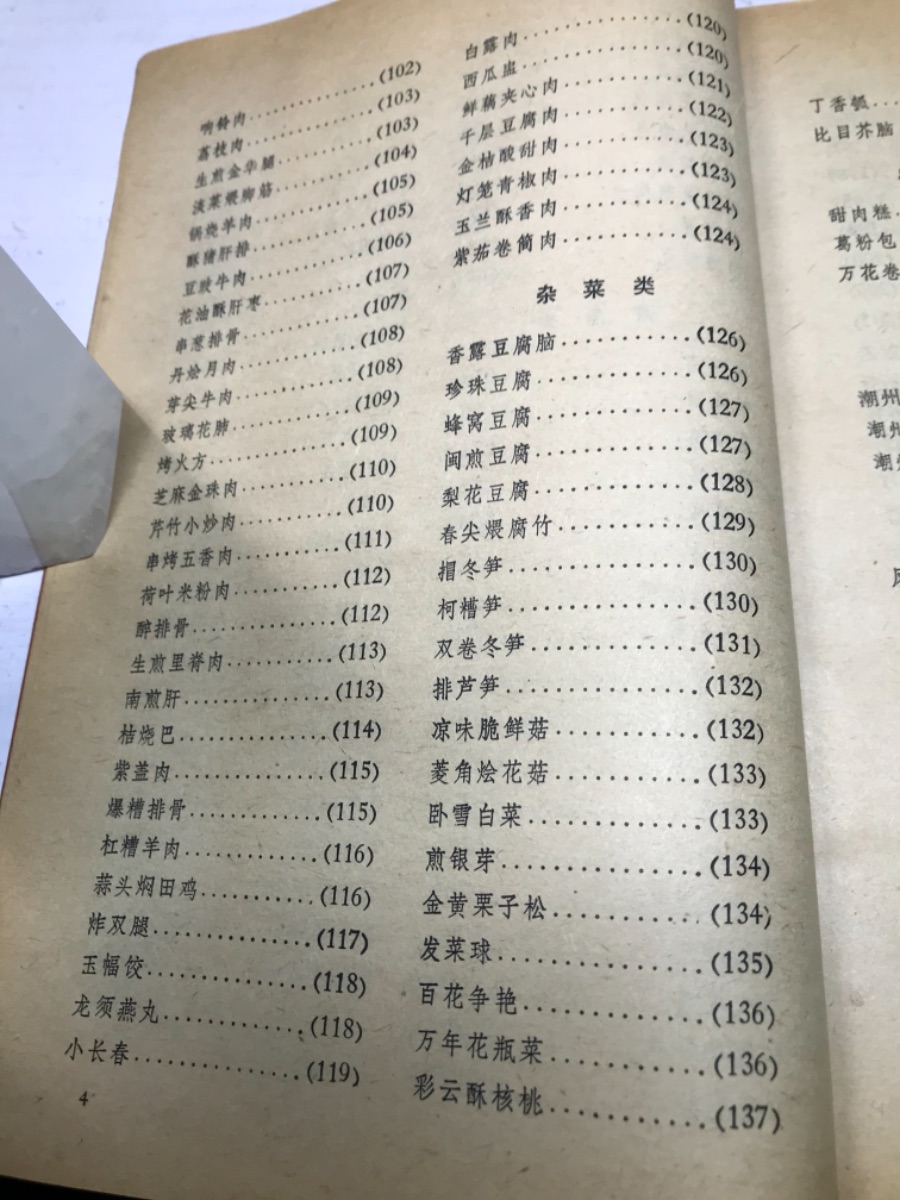 响铃肉……………(102)
荔枝肉……………(103)
生煎金华腿…………(103)
淡菜煨脚筋…………(104)
锅烧羊肉……………(105)
酥猪肝排……………(105)
豆豉牛肉……………(106)
花油酥肝枣…………(107)
串葱排骨……………(107)
丹烩月肉……………(108)
芽尖牛肉……………(108)
玻璃花肺……………(109)
烤火方………………(109)
芝麻金珠肉…………(110)
芹竹小炒肉…………(110)
串烤五香肉…………(111)
荷叶米粉肉…………(112)
醉排骨………………(112)
生煎里脊肉…………(113)
南煎肝………………(113)
桔烧巴………………(114)
紫盖肉………………(115)
爆糟排骨……………(115)
杠糟羊肉……………(116)
蒜头焖田鸡…………(116)
炸双腿………………(117)
玉幅饺………………(118)
龙须燕丸……………(118)
小长春………………(119)
4
白露肉………………(120)
西瓜盅………………(120)
鲜藕夹心肉…………(121)
千层豆腐肉…………(122)
金桔酸甜肉…………(123)
灯笼青椒肉…………(123)
玉兰酥香肉…………(124)
紫茄卷筒肉…………(124)
杂菜类
香露豆腐脑…………(126)
珍珠豆腐……………(126)
蜂窝豆腐……………(127)
闽煎豆腐……………(127)
梨花豆腐……………(128)
春尖煨腐竹…………(129)
䏡冬笋………………(130)
柯糟笋………………(130)
双卷冬笋……………(131)
排芦笋………………(132)
凉味脆鲜菇…………(132)
菱角烩花菇…………(133)
卧雪白菜……………(133)
煎银芽………………(134)
金黄栗子松…………(134)
发菜球………………(135)
百花争艳……………(136)
万年花瓶菜…………(136)
彩云酥核桃…………(137)
丁香瓠…
比目芥脑
甜肉糕…
葛粉包
万花卷
潮州
潮州
潮